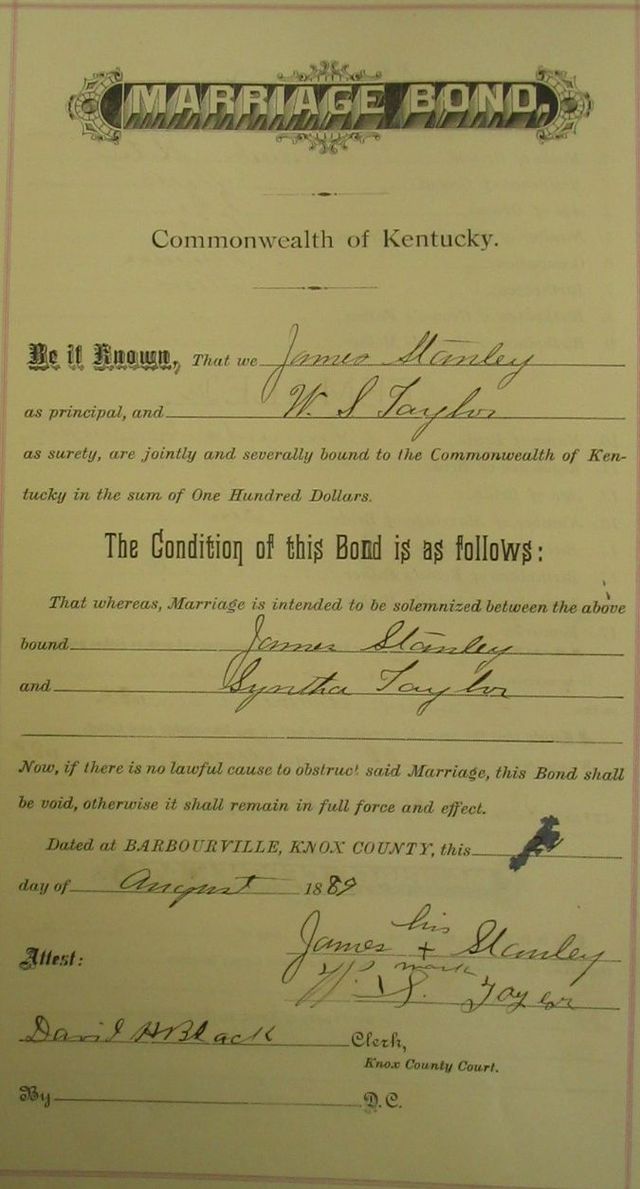 MARRIAGE BOND.
Commonwealth of Kentucky.
Be it Known, That we James Stanley
as principal, and W. S Taylor
as surety, are jointly and severally bound to the Commonwealth of Ken-
tucky in the sum of One Hundred Dollars.
The Condition of this Bond is as follows:
That whereas, Marriage is intended to be solemnized between the above
bound James Stanley
and Syntha Taylor
Now, if there is no lawful cause to obstruct said Marriage, this Bond shall
be void, otherwise it shall remain in full force and effect.
Dated at BARBOURVILLE, KNOX COUNTY, this
day of August 1889
his
James + Stanley
Attest:
mark
W. S. Taylor
David H Black Clerk,
Knox County Court.
By D.C.